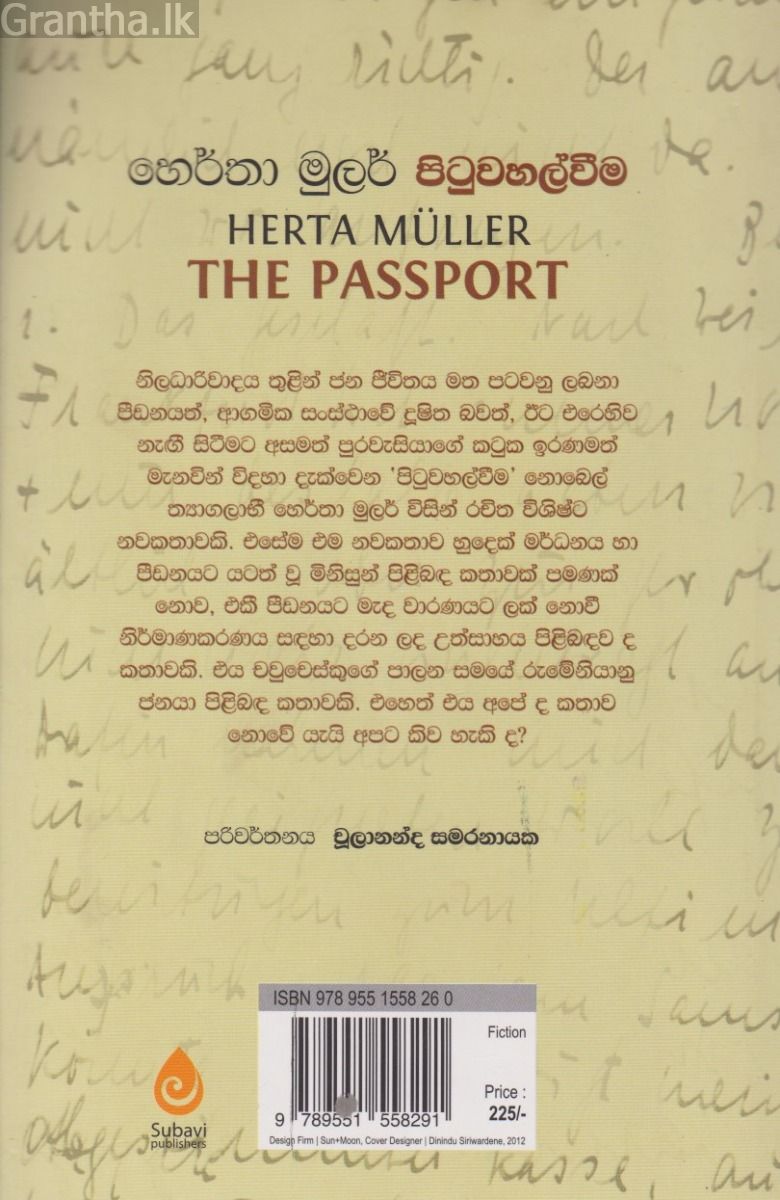 Grantha.lk
හෙර්තා මුලර් පිටුවහල්වීම
HERTA MÜLLER
THE PASSPORT
නිලධාරිවාදය තුළින් ජන ජීවිතය මත පටවනු ලබනා
පීඩනයත්, ආගමික සංස්ථාවේ දූෂිත බවත්, ඊට එරෙහිව
නැඟී සිටීමට අසමත් පුරවැසියාගේ කටුක ඉරණමත්
මැනවින් විදහා දැක්වෙන 'පිටුවහල්වීම' නොබෙල්
ත්‍යාගලාභී හෙර්තා මුලර් විසින් රචිත විශිෂ්ට
නවකතාවකි. එසේම එම නවකතාව හුදෙක් මර්ධනය හා
පීඩනයට යටත් වූ මිනිසුන් පිළිබඳ කතාවක් පමණක්
නොව, එකී පීඩනයට මැද වාරණයට ලක් නොවී
නිර්මාණකරණය සඳහා දරන ලද උත්සාහය පිළිබඳව ද
කතාවකි. එය චවුචෙස්කුගේ පාලන සමයේ රුමේනියානු
ජනයා පිළිබඳ කතාවකි. එහෙත් එය අපේ ද කතාව
නොවේ යැයි අපට කිව හැකි ද?
පරිවර්තනය චූලානන්ද සමරනායක
ISBN 978 955 1558 26 0
Fiction
Price :
225/-
9 789551 558291
Design Firm | Sun+Moon, Cover Designer | Dinindu Siriwardene, 2012
Subavi
publishers